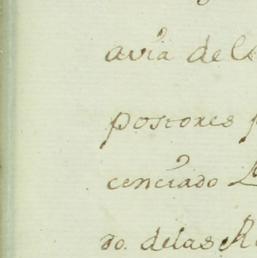 avia del
postores
cenciado
do. delas R